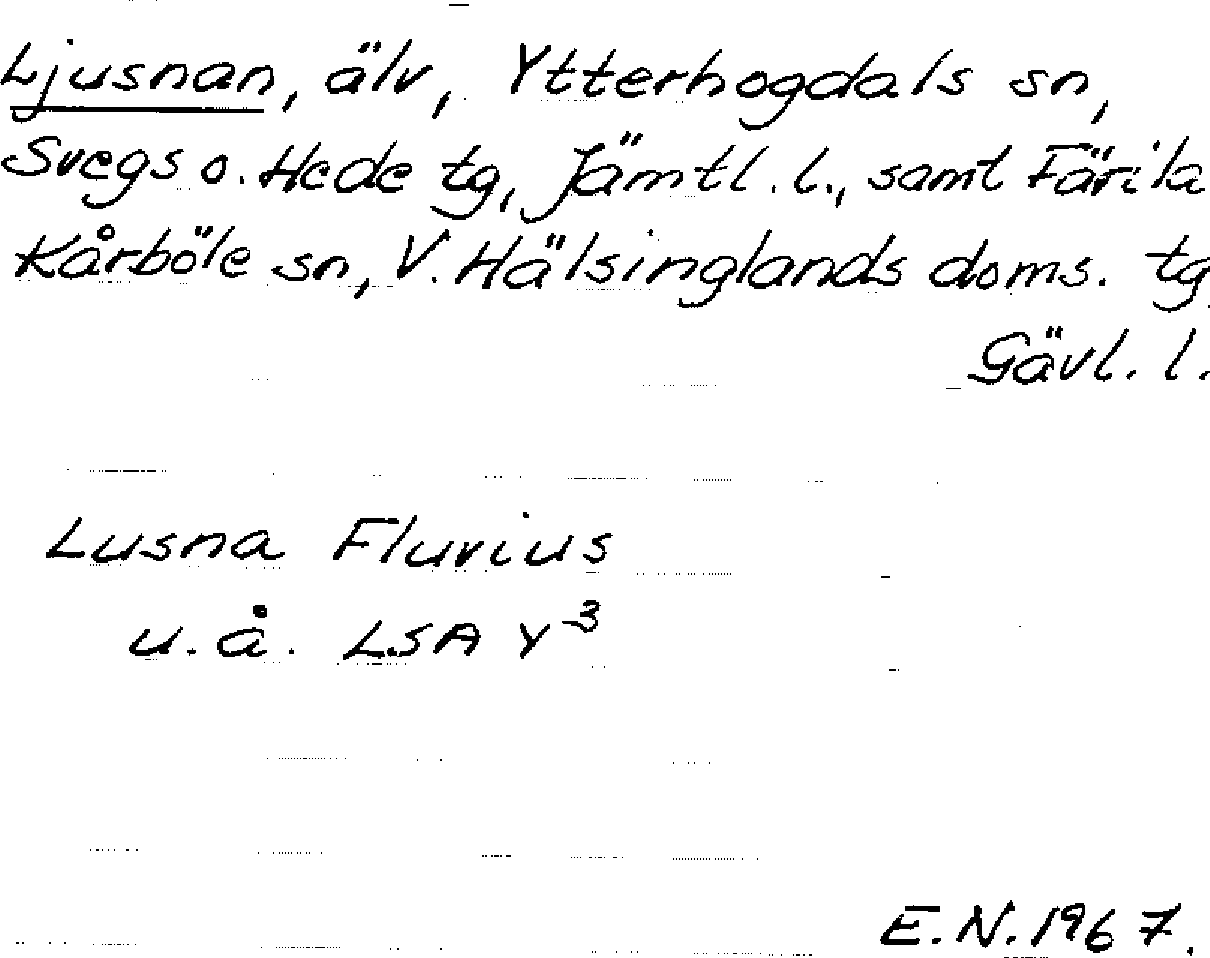 Ljusnan, älv, Ytterhogdals sn,
Svegs o. Hede tg, Jämtl. l., samt Färila
Kårböle sn, V. Hälsinglands doms. tg
Gävl. l.
Lusna Fluvius
u.å. LSA Y³
E.N. 1967.